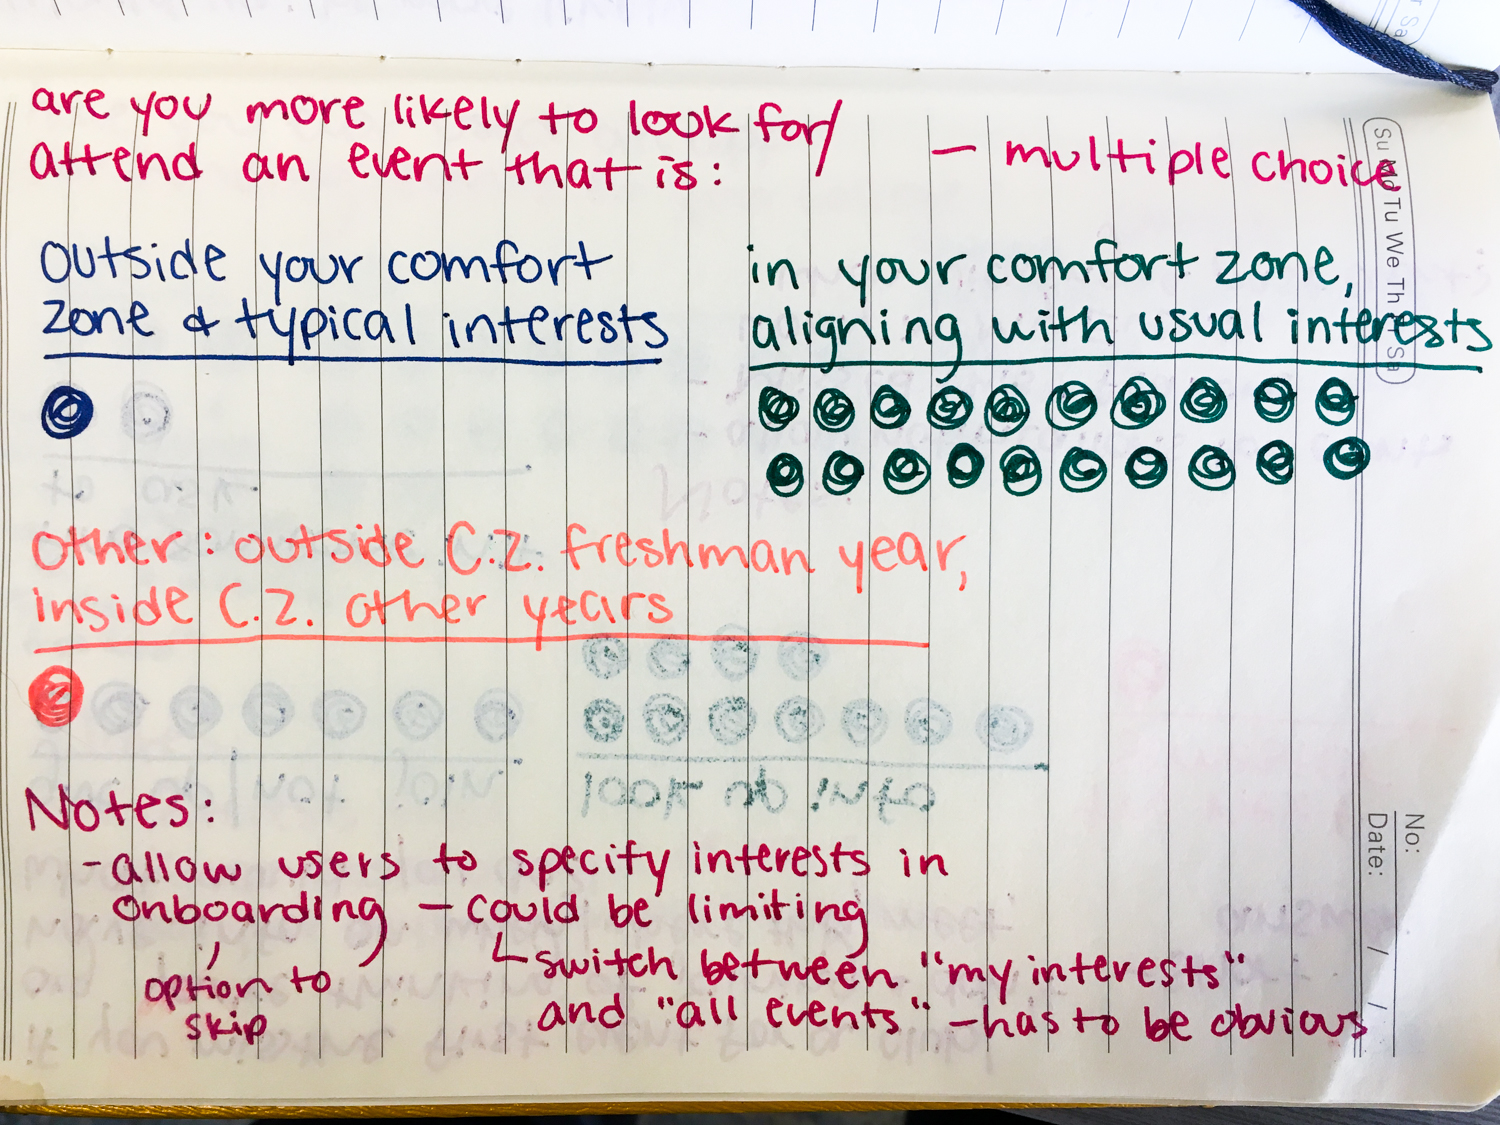 are you more likely to look for/
attend an event that is:
- multiple choice
outside your comfort
zone & typical interests
in your comfort zone,
aligning with usual interests
other: outside C.Z. freshman year,
inside C.Z. other years
Notes:
- allow users to specify interests in
onboarding - could be limiting
option to
skip
switch between "my interests"
and "all events" - has to be obvious
Su Mo Tu We Th Fr Sa
No:
Date: / /